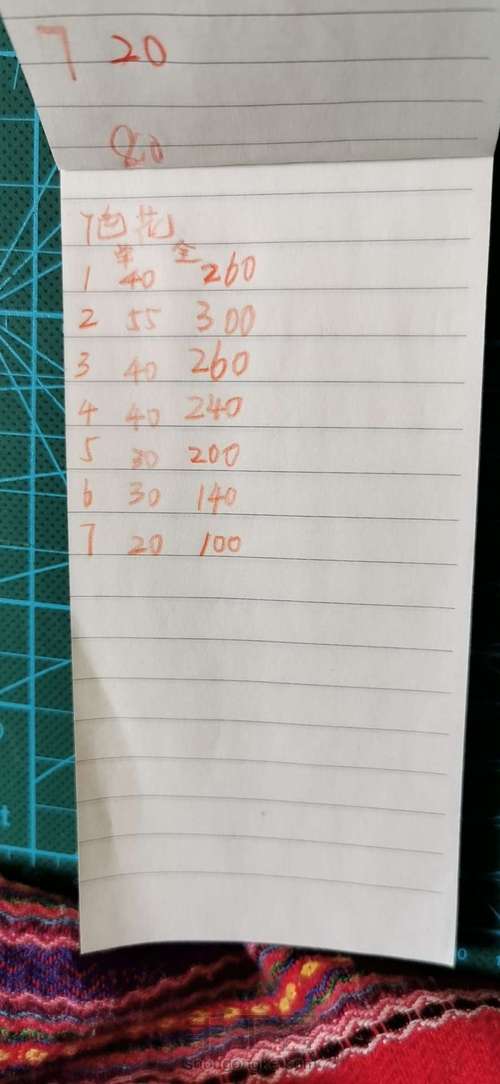 7 20
80
7色花
单 全
1 40 260
2 55 300
3 40 260
4 40 240
5 30 200
6 30 140
7 20 100